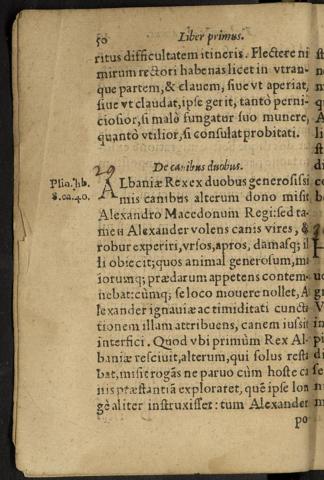 50 Liber primus.
ritus difficultatem itineris. Flectere ni
mirum rectori habenas licet in vtran-
que partem, & clauem, siue vt aperiat,
siue vt claudat, ipse gerit, tantò perni-
ciosior, si malò fungatur suo munere,
quantò vtilior, si consulat probitati.
29
De canibus duobus.
Plin. lib.
8. ca. 40.
ALbaniæ Rex ex duobus generosissi
mis canibus alterum dono misit
Alexandro Macedonum Regi: sed ta-
men Alexander volens canis vires, &
robur experiri, vrsos, apros, damasq; il
li obiecit; quos animal generosum, mi
iorumq; prædarum appetens contem-
nebat: cùmq; se loco mouere nollet, A
lexander ignauiæ ac timiditati cuncta
tionem illam attribuens, canem iussit
interfici. Quod vbi primùm Rex Al-
baniæ resciuit, alterum, qui solus resta
bat, misit rogãs ne paruo cùm hoste ca
nis præstantiã exploraret, quẽ ipse lon
gè aliter instruxisset: tum Alexander
po